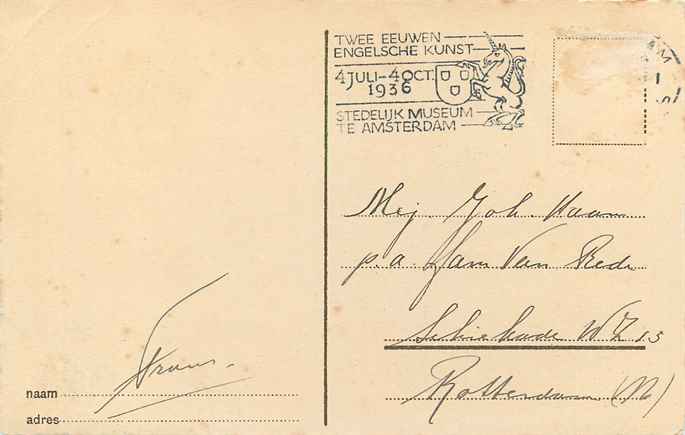 TWEE EEUWEN
ENGELSCHE KUNST
4 JULI-4 OCT.
1936
STEDELIJK MUSEUM
TE AMSTERDAM
Mej. Joh. Haan
p.a. Fam Van Rede
Schiekade WZ 13
Rotterdam (N)
Frans.
naam
adres